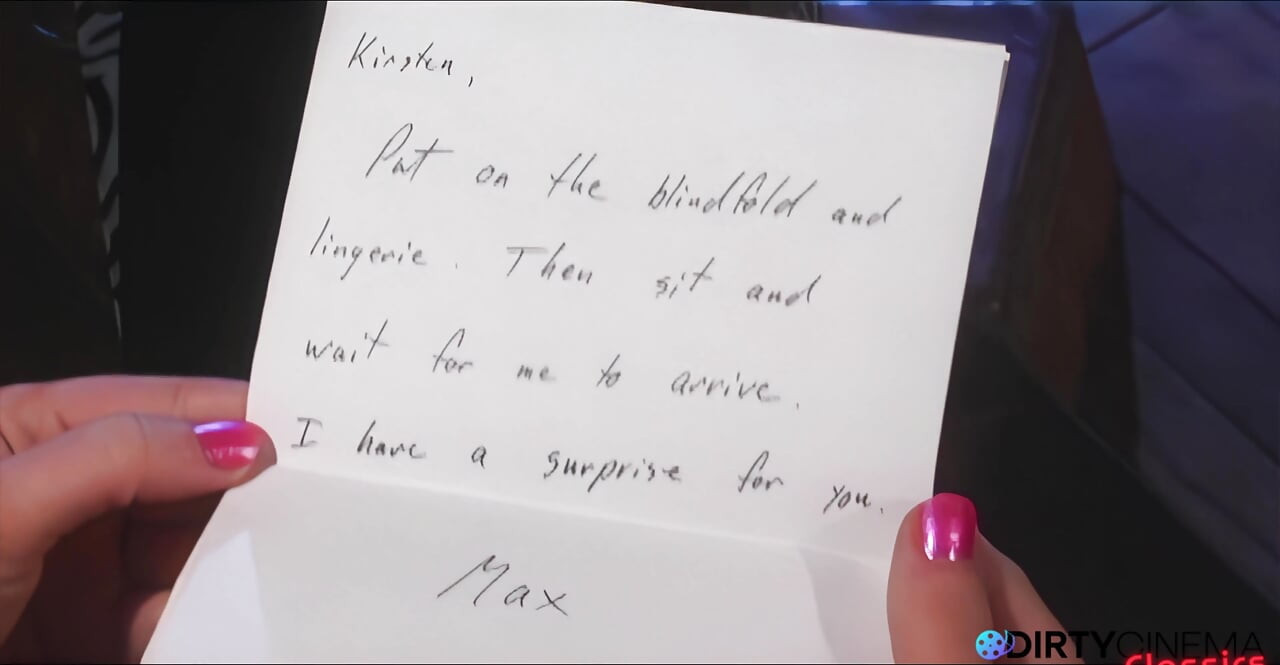 Kirsten,
Put on the blindfold and
lingerie. Then sit and
wait for me to arrive.
I have a surprise for you.
Max
DIRTYCINEMA
Classics